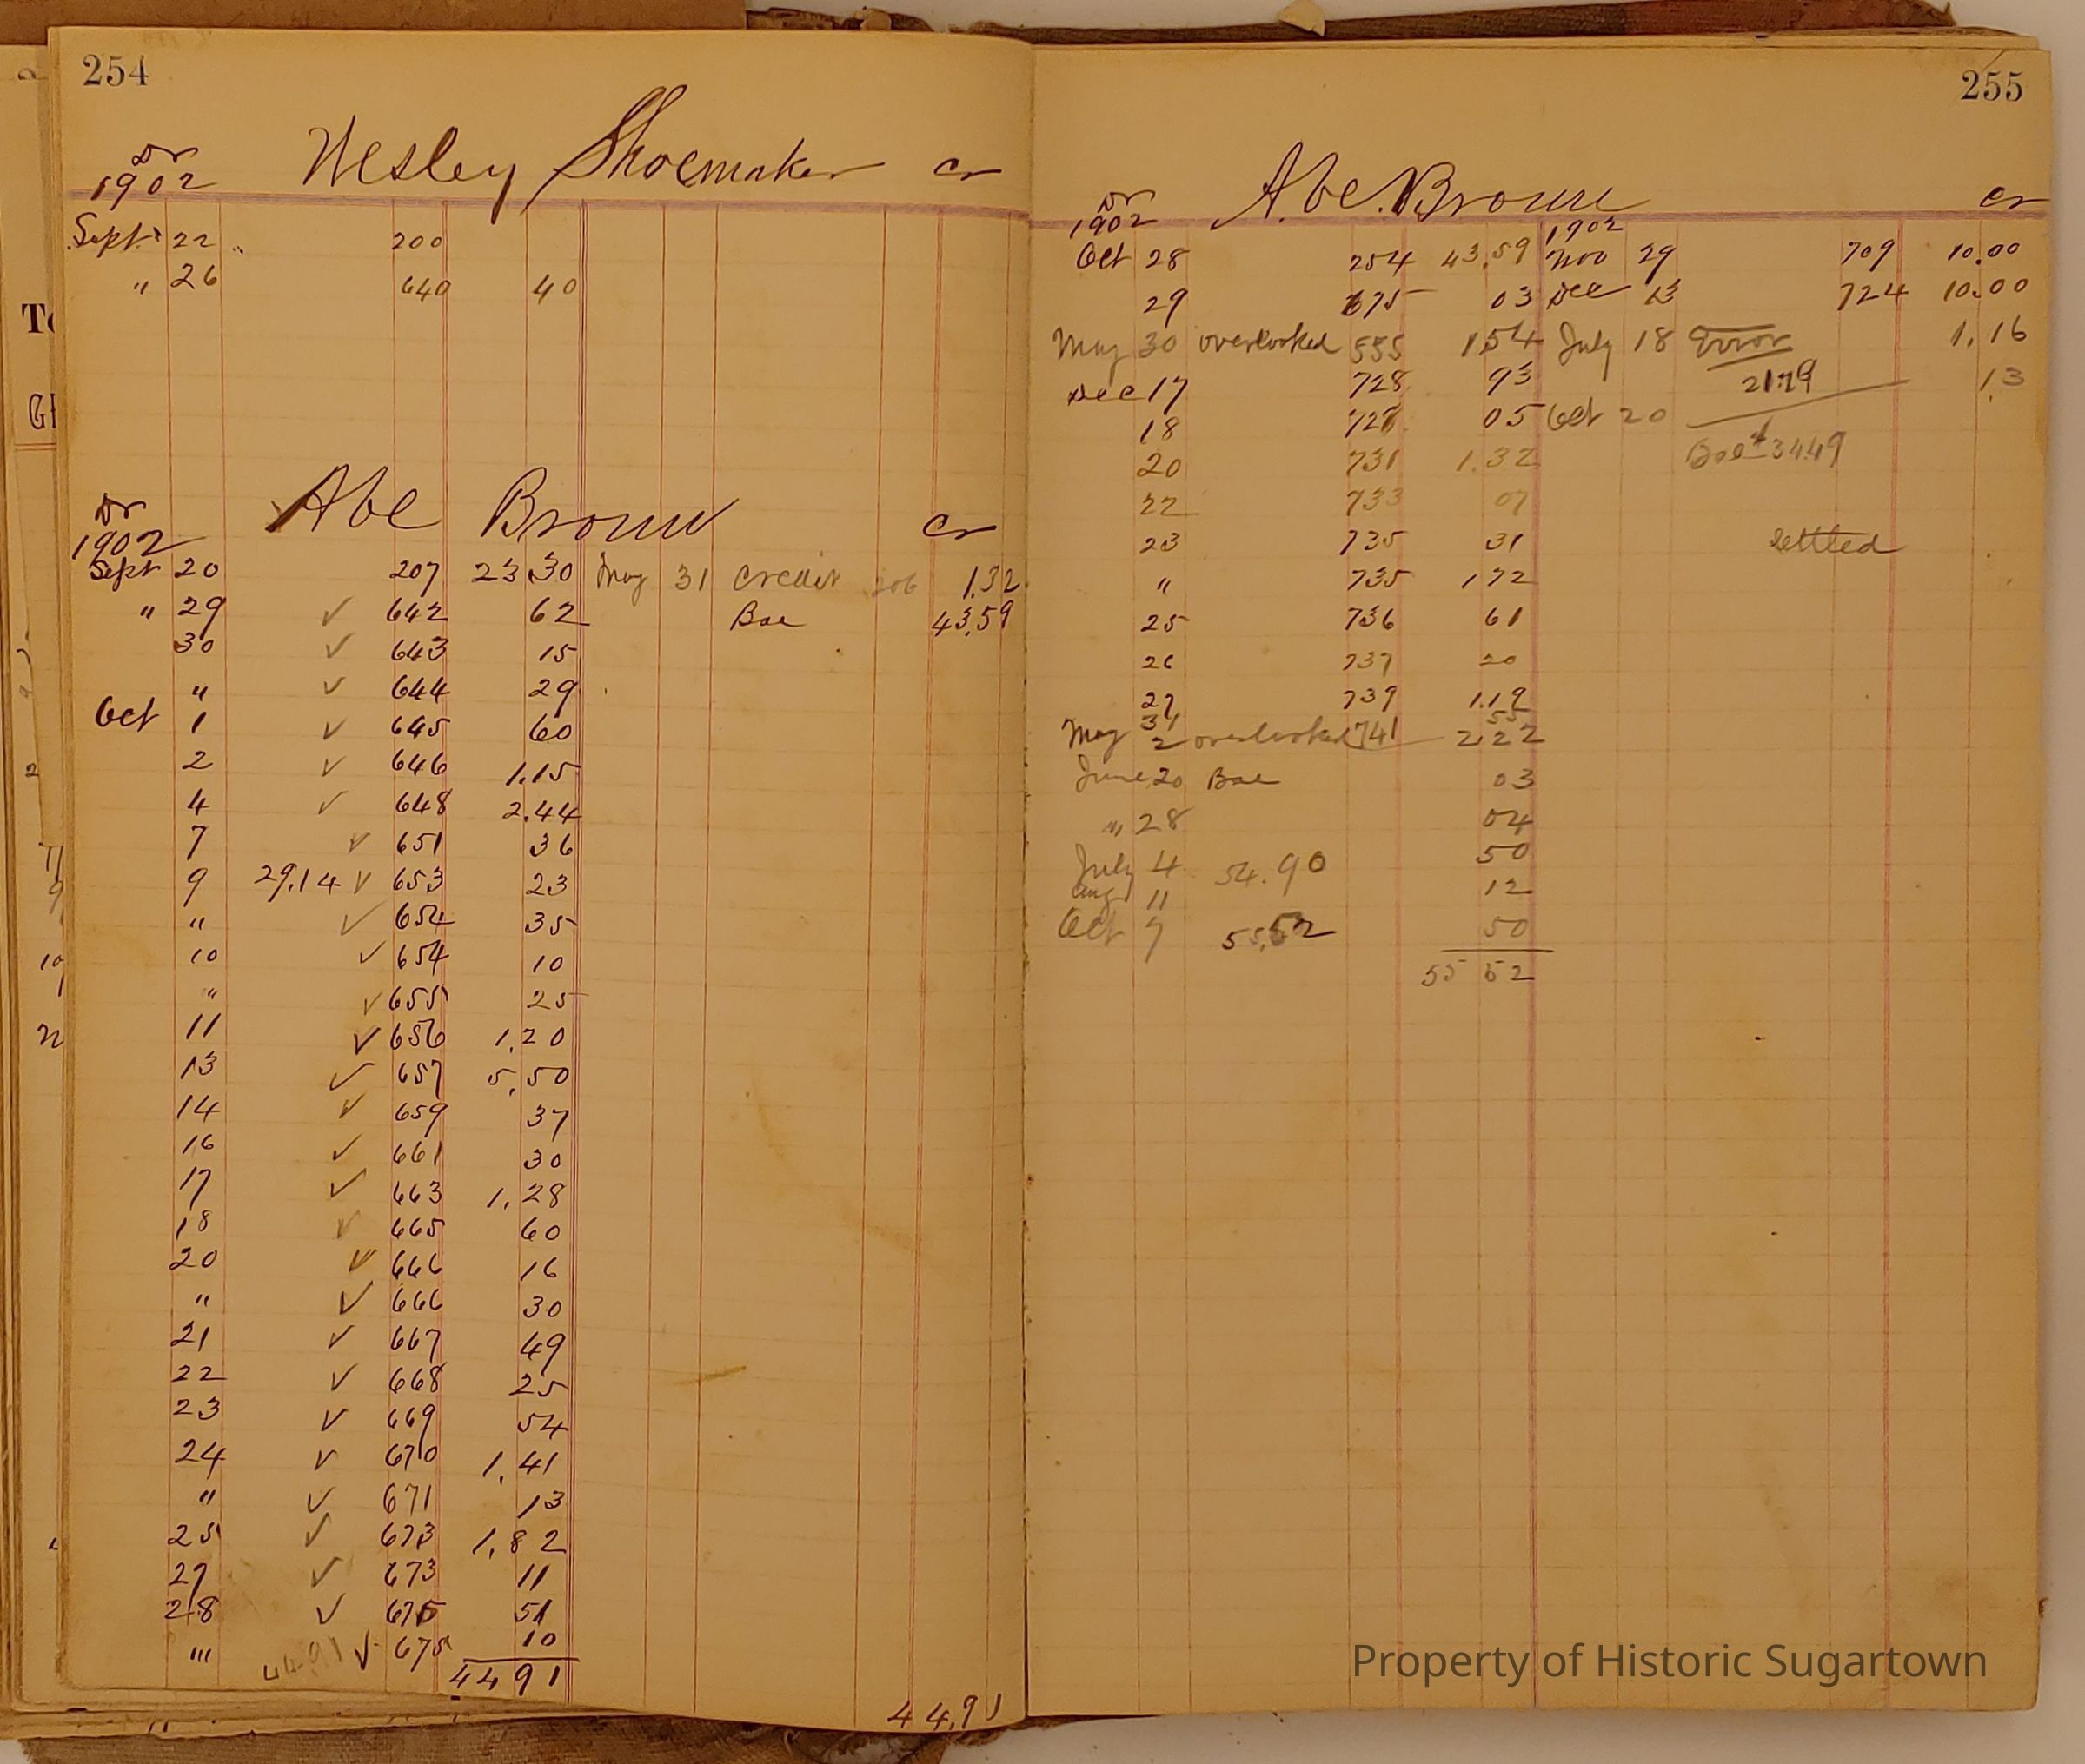 254
Dr Wesley Shoemaker Cr
1902
Sept 22 200
" 26 640 40
Dr Abe Brown Cr
1902
Sept 20 207 23.30 May 31 Credit 206 1.32
" 29 ✓ 642 62 Bal 43.59
30 ✓ 643 15
" ✓ 644 29
Oct 1 ✓ 645 60
2 ✓ 646 1.15
4 ✓ 648 2.44
7 ✓ 651 36
9 29.14 ✓ 653 23
" ✓ 654 35
10 ✓ 654 10
" ✓ 655 25
11 ✓ 656 1.20
13 ✓ 657 5.50
14 ✓ 659 37
16 ✓ 661 30
17 ✓ 663 1.28
18 ✓ 665 60
20 ✓ 666 16
" ✓ 666 30
21 ✓ 667 49
22 ✓ 668 25
23 ✓ 669 54
24 ✓ 670 1.41
" ✓ 671 13
25 ✓ 673 1.82
27 ✓ 673 11
28 ✓ 675 51
"' 44.91 ✓ 675 10
44 91
44.91
255
Dr Abe. Brown Cr
1902 1902
Oct 28 254 43.59 Nov 29 709 10.00
29 675 03 Dec 13 724 10.00
May 30 overlooked 555 154 July 18 Error 1.16
Dec 17 728 93 21.29 .13
18 728 05 Oct 20
20 731 1.32 Bal $34.49
22 733 07
23 735 31 settled
" 735 172
25 736 61
26 737 20
27 739 1.19
31 55
May 2 overlooked 741 2.22
June 20 Bal 03
" 28 04
July 4 54.90 50
Aug 11 12
Oct 7 55.52 50
55 52
Property of Historic Sugartown